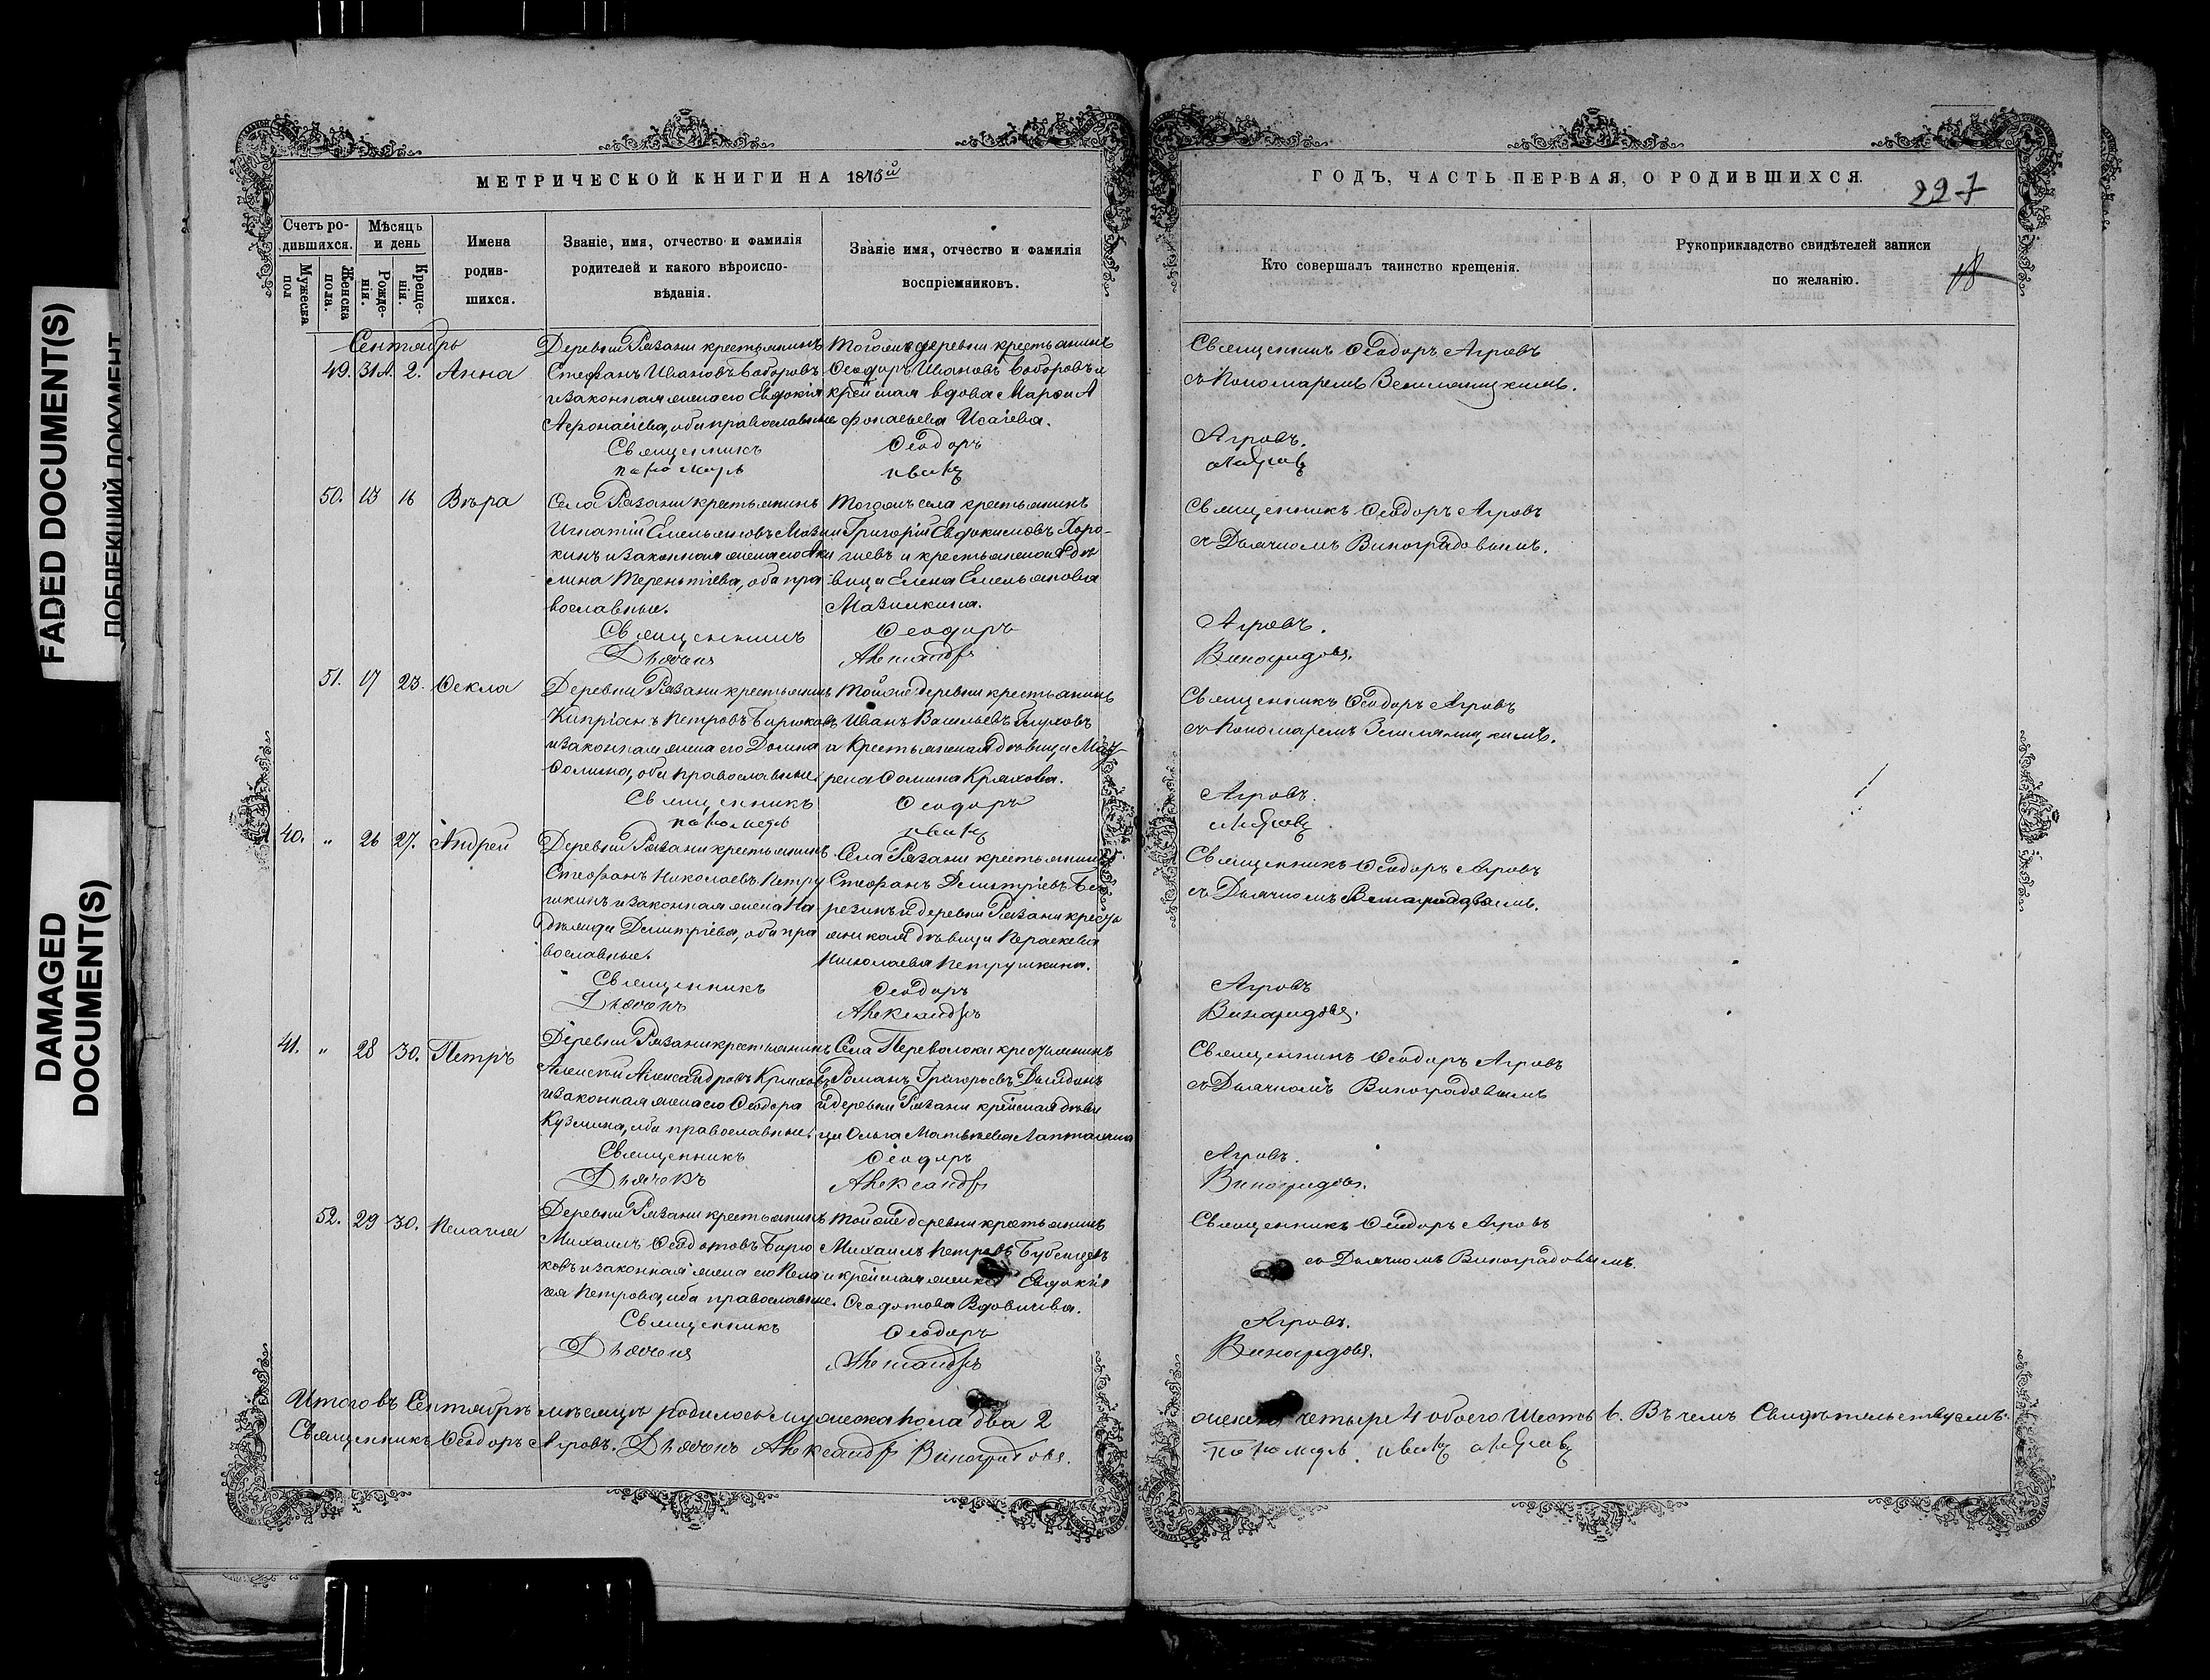 FADED DOCUMENT(S)
DAMAGED DOCUMENT(S)
МЕТРИЧЕСКОЙ КНИГИ НА 1875й
ГОДЪ, ЧАСТЬ ПЕРВАЯ, О РОДИВШИХСЯ.
227
18
Счетъ родившихся.
Мужеска пол
Женска пола.
Мѣсяцъ и день
Рожденія.
Крещенія.
Имена родившихся.
Званіе, имя, отчество и фамилія
родителей и какого вѣроиспо-
вѣданія.
Званіе имя, отчество и фамилія
воспріемниковъ.
Кто совершалъ таинство крещенія.
Рукоприкладство свидѣтелей записи
по желанію.
Сентябрь
49. 31А. 2. Анна
Деревни Рязани крестьянинъ
Стефанъ Ивановъ Бобровъ
и законная жена его Евдокія
Афонасіева, оба православные
Священникъ
пономарь
деревни крестьянинъ
Ѳеодоръ Ивановъ Бобровъ и
вдова Марѳа А
фонасьева Исаіева.
Ѳеодоръ
Священникъ Ѳеодоръ Агровъ
съ Пономаремъ
Агровъ.
50. 13 16 Вѣра
Села Рязани крестьянинъ
Игнатій Емельяновъ Мази
кинъ и законная жена его Аки
лина Терентіева, оба пра
вославные.
Священникъ
Дьячекъ
Тогожъ села крестьянинъ
Григорій Евдокимовъ Хоро-
и крестьянская дѣ
вица Елена Емельянова
Мазикина.
Ѳеодоръ
Александръ
Священникъ Ѳеодоръ Агровъ
съ Дьячкомъ Виноградовымъ.
Агровъ.
Виноградовъ.
51. 17 23. Ѳекла
Деревни Рязани крестьянинъ
Кипріанъ Петровъ Бирюковъ
и законная жена его Домна
Ѳомина, оба православные.
Священникъ
пономарь
Тойже деревни крестьянинъ
Иванъ Васильевъ Глуховъ
и Крестьянская дѣвица Мав
рена Ѳомина Кряхова.
Ѳеодоръ
Священникъ Ѳеодоръ Агровъ
съ Пономаремъ
Агровъ.
40. „ 26 27. Андрей
Деревни Рязани крестьянинъ
Стефанъ Николаевъ Петру
шкинъ и законная жена На
дежда Димитріева, оба пра
вославные.
Священникъ
Дьячекъ
Села Рязани крестьянинъ
Стефанъ Димитріевъ Бе
резинъ и деревни Рязани кресть
янская дѣвица Параскева
Николаева Петрушкина.
Ѳеодоръ
Александръ
Священникъ Ѳеодоръ Агровъ
съ Дьячкомъ Виноградовымъ.
Агровъ
Виноградовъ.
41. „ 28 30. Петръ
Деревни Рязани крестьянинъ
Алексѣй Александровъ Кряховъ
и законная жена его Ѳеодора
Кузмина, оба православные.
Священникъ
Дьячекъ
Села Переволоки крестьянинъ
Романъ Григорьевъ
и деревни Рязани дѣви
ца Ольга Матвѣева
Ѳеодоръ
Александръ
Священникъ Ѳеодоръ Агровъ
съ Дьячкомъ Виноградовымъ
Агровъ.
Виноградовъ.
52. 29 30. Пелагея
Деревни Рязани крестьянинъ
Михаилъ Ѳедотовъ Бирю
ковъ и законная жена его Пела
гея Петрова, оба православные.
Священникъ
Дьячекъ
Тойже деревни крестьянинъ
Михаилъ Петровъ
Евдокія
Ѳеодотова Вдовичева.
Ѳеодоръ
Александръ
Священникъ Ѳеодоръ Агровъ
съ Дьячкомъ Виноградовымъ.
Агровъ.
Виноградовъ.
Итого въ Сентябрѣ мѣсяцѣ родилось мужеска пола два 2
женска четыре 4 обоего шесть 6. Въ чемъ Свидѣтельствуемъ:
Священникъ Ѳеодоръ Агровъ. Дьячекъ Александръ Виноградовъ.
пономарь